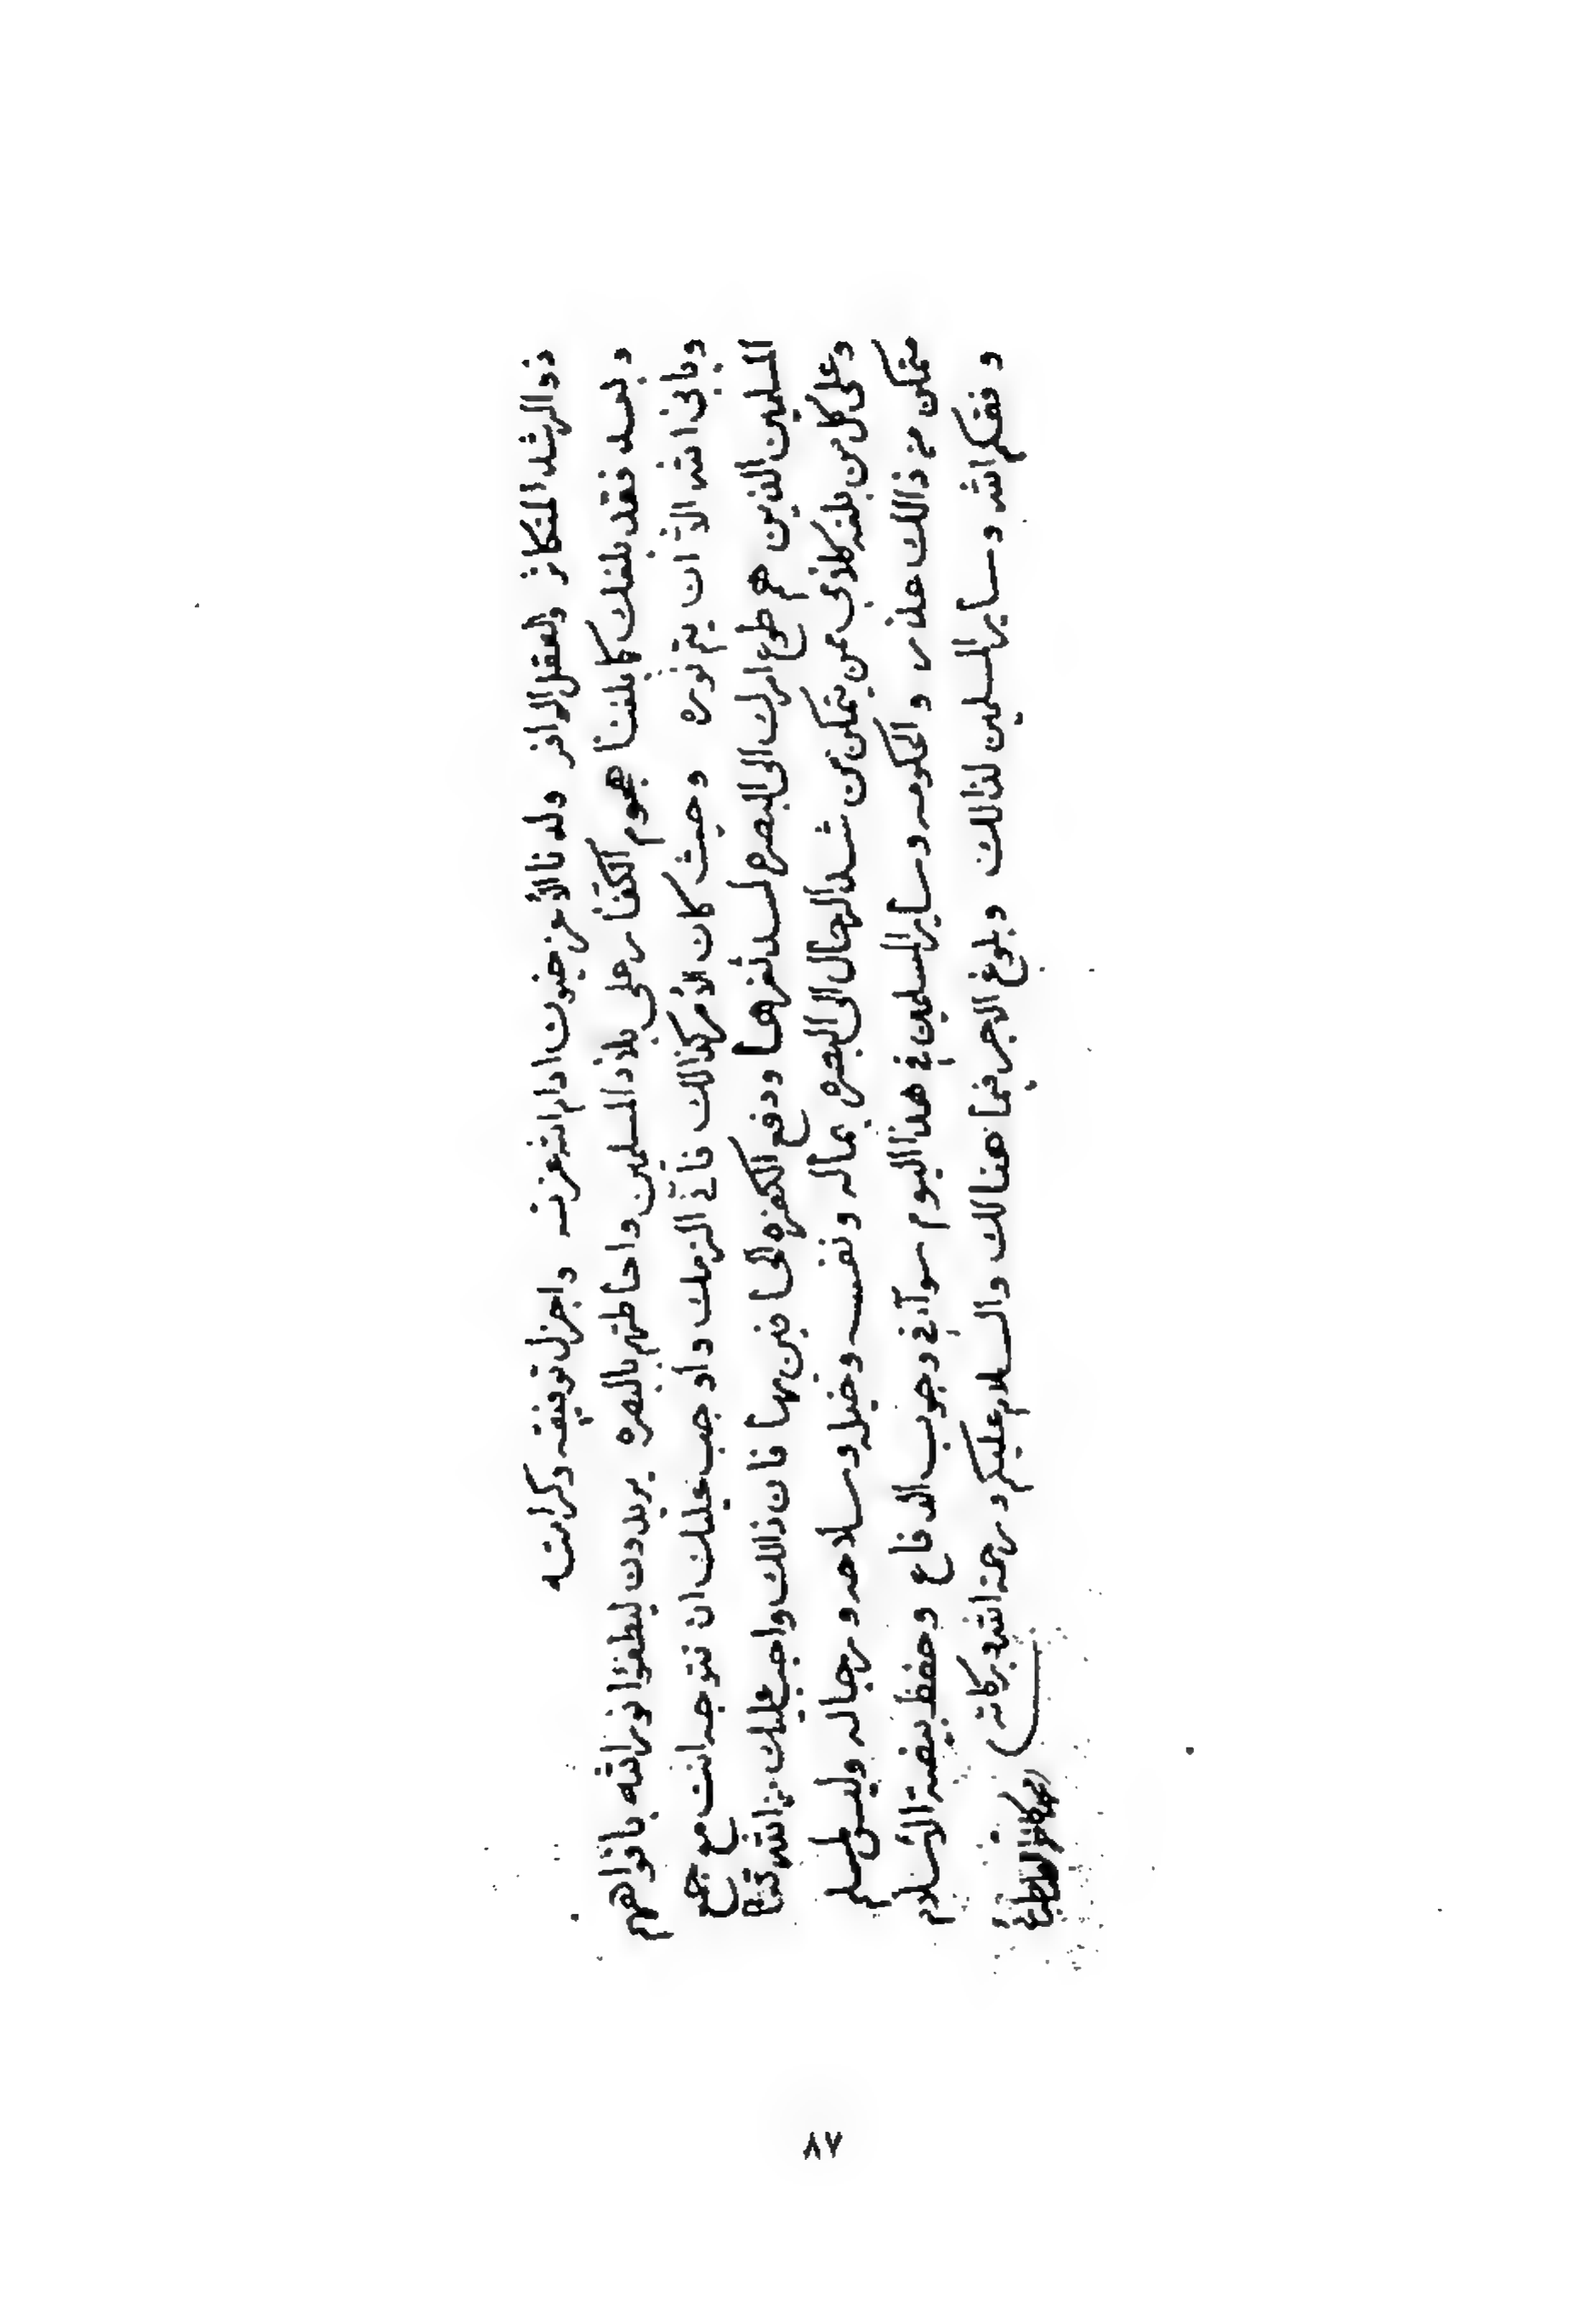 ذو الرشد المتكاثر والعقل الوافر ولدنا الأعز خيون ادام الله عزته واجزل توفيقه وكرامته
وبعد فقد بلغك كما بلغنا هجوم الكفار على بلاد المسلمين واحاطتهم بالبصره يريدون ليطفؤا نور الله بافواههم
ويابى الله الا ان يتم نوره وحيث كان الأمر كذالك فانى الزمك واوجب عليك ان تتوجه انت مع جميع
المسلمين الذين هم طوع امرك الى البصره لسد ثغرها ودفع الكفره فان ذالك واجب عليك من الله
وعلى كل من بلغه كلامى ممن يتمكن من شد الرحال الى البصره بماله ونفسه وخيله وسلاحه ورجاله وليس لمسلم
متمكن من ذالك عذر والحكومه وساير المسلمين في هذا اليوم سوآء في وجوب الدفاع وحفظ بيضة الأسلام
وفقكم الله وساير المسلمين لذالك وبلوغ الاجر فيما هنالك والسلام عليكم ورحمة الله وبركاته
٨٧